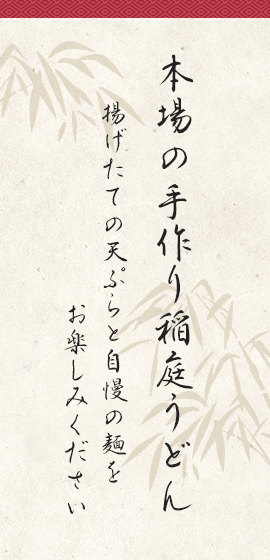 本場の手作り稲庭うどん
揚げたての天ぷらと自慢の麺を
お楽しみください